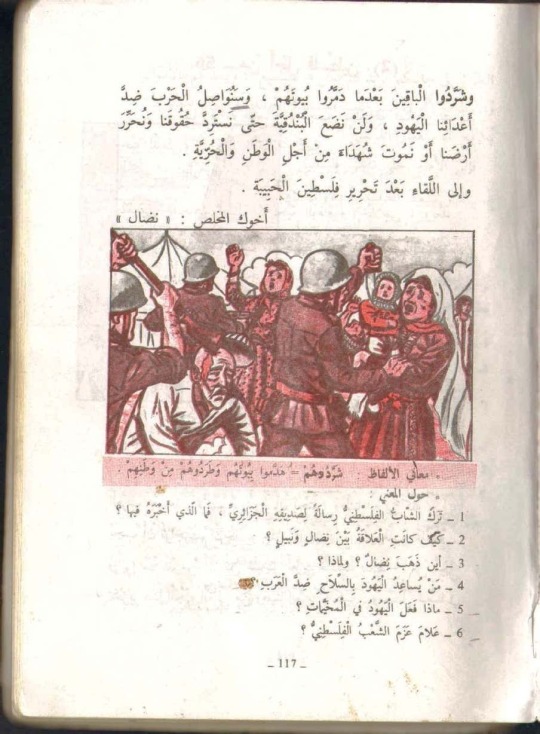 وشَرَّدُوا الْباقِينَ بَعْدَما دَمَّرُوا بُيوتَهُمْ ، وَسَنُوَاصِلُ الْحَرْبَ ضِدَّ
أَعْدَائِنا الْيَهُودِ ، وَلَنْ نَضَعَ الْبُنْدُقِيَّةَ حَتَّى نَسْتَرِدَّ حُقُوقَنا وَنُحَرِّرَ
أَرْضَنا أَوْ نَمُوتَ شُهَدَاءَ مِنْ أَجْلِ الْوَطَنِ وَالْحُرِّيَّةِ .
وإلى اللِّقاءِ بَعْدَ تَحْرِيرِ فِلَسْطِينَ الْحَبِيبَةِ .
أَخوك المخلص : « نضال »
• معاني الألفاظ شَرَّدُوهُمْ = هدَّموا بُيُوتَهُم وَطَرَدُوهُمْ مِنْ وَطَنِهِمْ .
• حول المعنى :
1 ـ تَرَكَ الشَّابُّ الفِلَسْطِينِيُّ رِسالَةً لِصَدِيقِهِ الْجَزَائِرِيِّ ، فَمَا الَّذي أَخْبَرَهُ فيها ؟
2 ـ كَيْفَ كانَتِ الْعَلاقَةُ بَيْنَ نِضالٍ وَنَبِيلٍ ؟
3 ـ أين ذَهَبَ نِضَالٌ ؟ ولماذا ؟
4 ـ مَنْ يُساعِدُ الْيَهُودَ بِالسِّلَاحِ ضِدَّ الْعَرَبِ
5 ـ ماذا فَعَلَ الْيَهُودُ في الْمُخَيَّمَاتِ ؟
6 ـ عَلامَ عَزَمَ الشَّعْبُ الْفِلَسْطِينِيُّ ؟
ـ 117 ـ